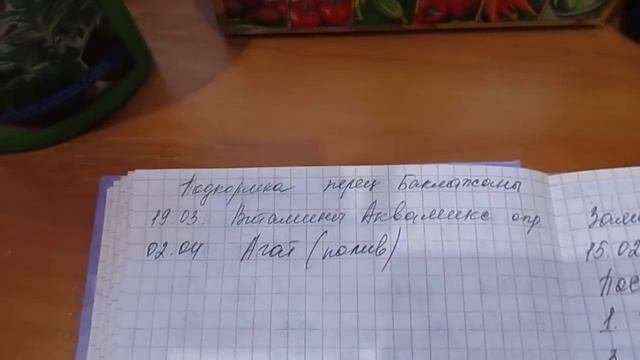 Подкормка перец Баклажаны
19.03. Витамины Аквамикс опр.
02.04 Агат (полив)
15.02
1.